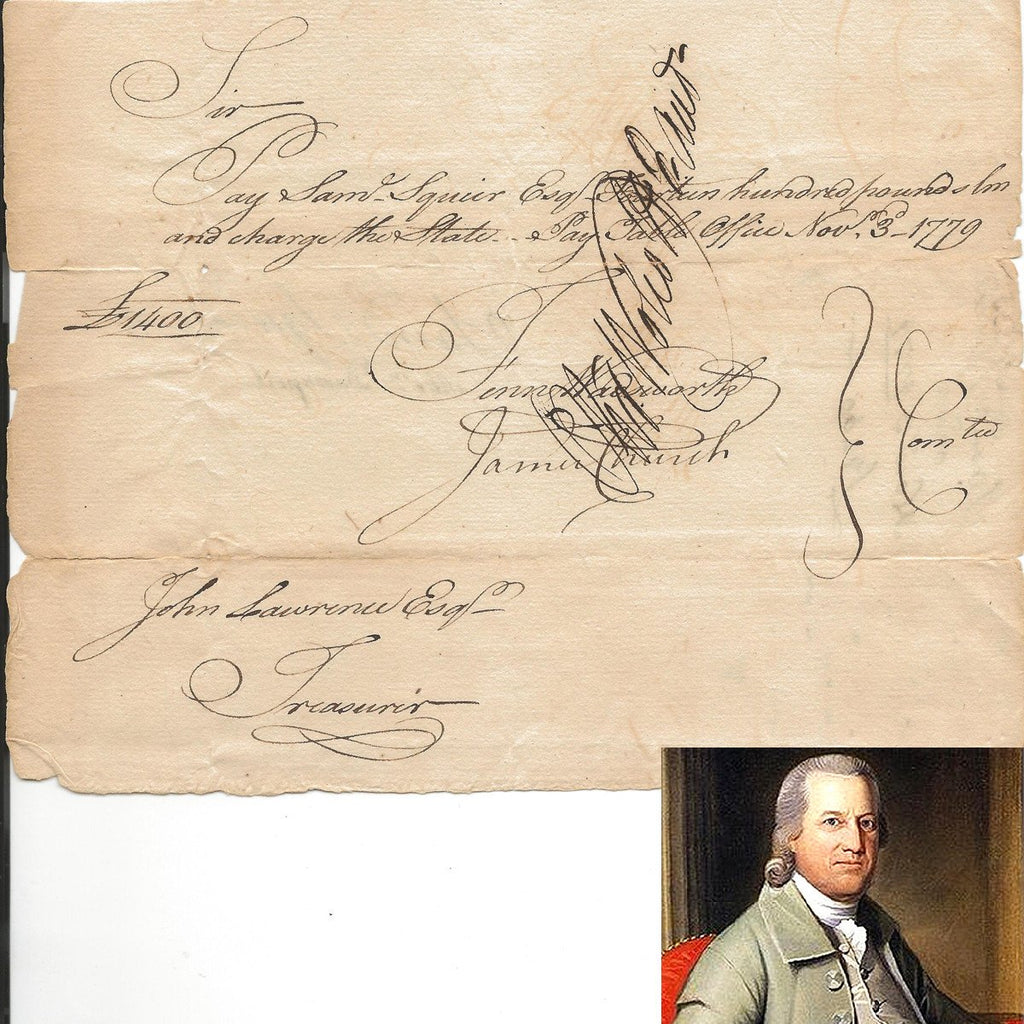 Sir
Pay Sam.l Squier Esq.r Fourteen hundred pounds lm
and charge the State... Pay Table Office Nov.r 3.d - 1779
£1400
Fenn Wadsworth
James Church
Com.tee
John Lawrence Esq.r
Treasurer